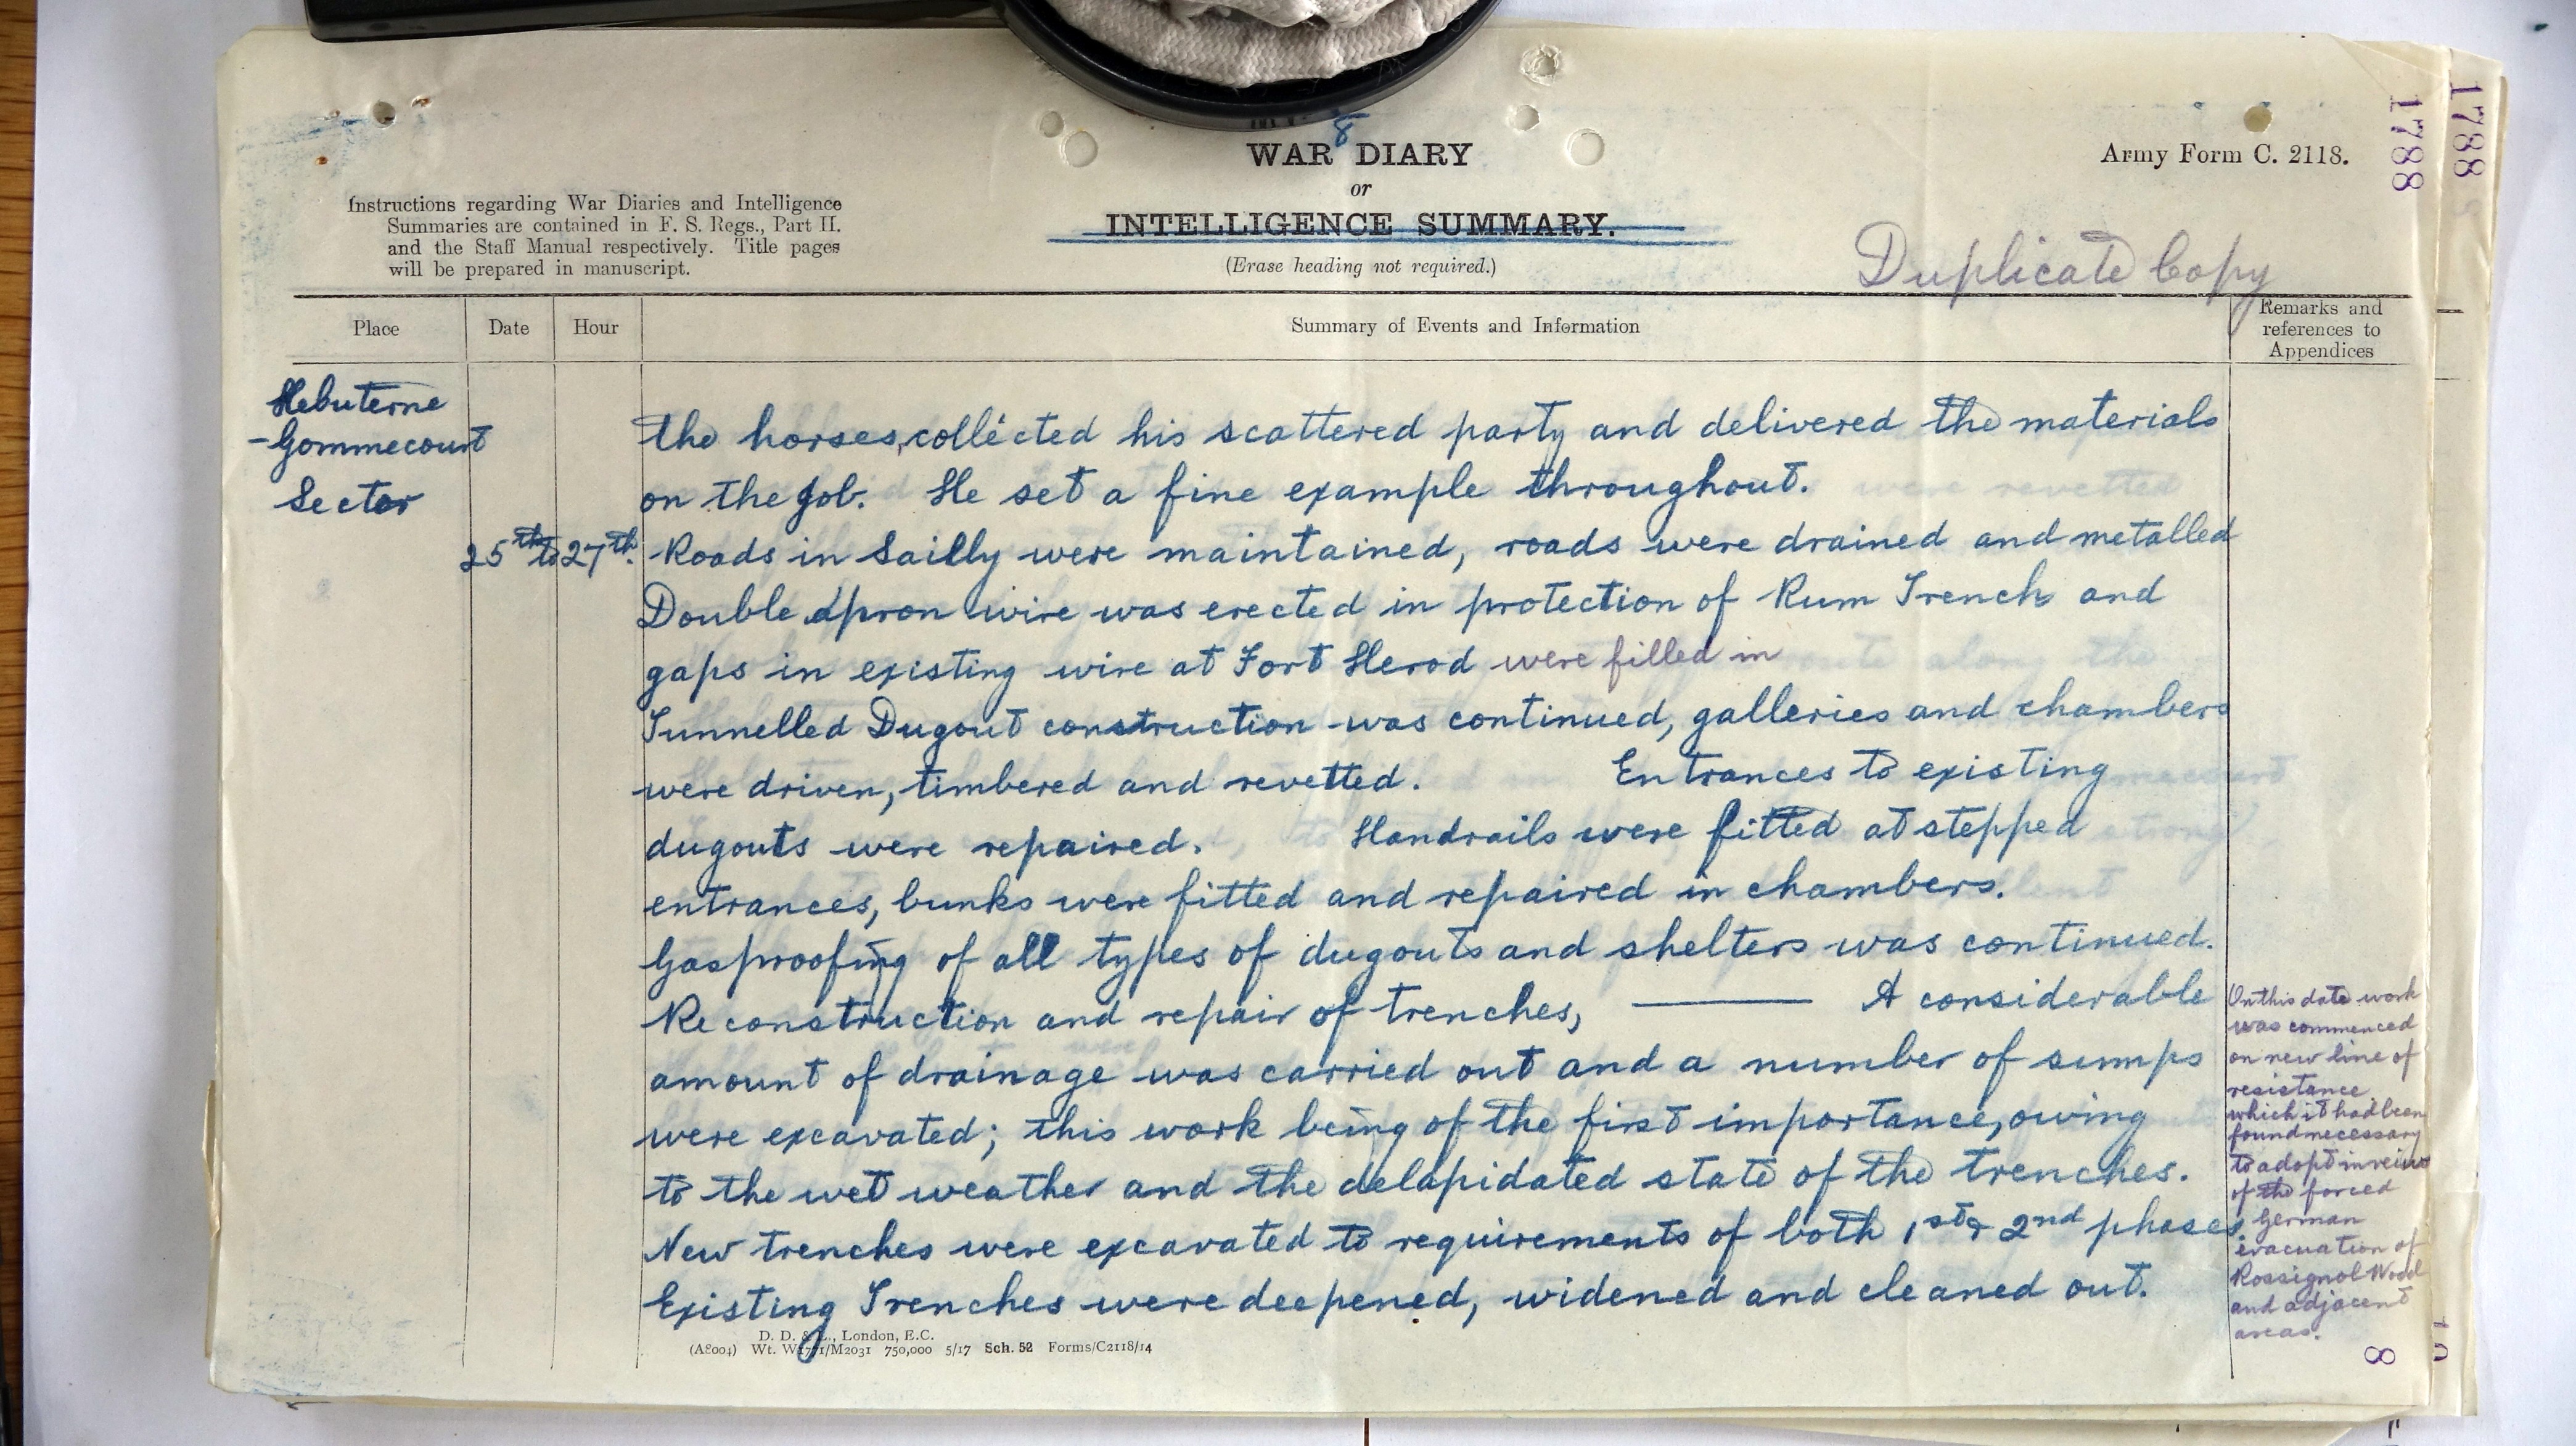 8
WAR DIARY
or
INTELLIGENCE SUMMARY.
(Erase heading not required.)
Army Form C. 2118.
1788
1788
Instructions regarding War Diaries and Intelligence
Summaries are contained in F. S. Regs., Part II.
and the Staff Manual respectively. Title pages
will be prepared in manuscript.
Duplicate Copy
Place
Date
Hour
Summary of Events and Information
Remarks and
references to
Appendices
Hebuterne
-Gommecourt
Sector
the horses, collected his scattered party and delivered the materials
on the job. He set a fine example throughout.
25th to 27th. Roads in Sailly were maintained, roads were drained and metalled
Double apron wire was erected in protection of Rum Trench and
gaps in existing wire at Fort Herod were filled in
Tunnelled Dugout construction was continued, galleries and chambers
were driven, timbered and revetted. Entrances to existing
dugouts were repaired. Handrails were fitted at stepped
entrances, bunks were fitted and repaired in chambers.
Gasproofing of all types of dugouts and shelters was continued.
Reconstruction and repair of trenches, ——— A considerable
amount of drainage was carried out and a number of sumps
were excavated; this work being of the first importance, owing
to the wet weather and the delapidated state of the trenches.
New trenches were excavated to requirements of both 1st & 2nd phases.
Existing Trenches were deepened, widened and cleaned out.
On this date work
was commenced
on new line of
resistance
which it had been
found necessary
to adopt in veiw
of the forced
German
evacuation of
Rossignol Wood
and adjacent
areas.
D. D. & L., London, E.C.
(A8004) Wt. W1771/M2031 750,000 5/17 Sch. 52 Forms/C2118/14
8